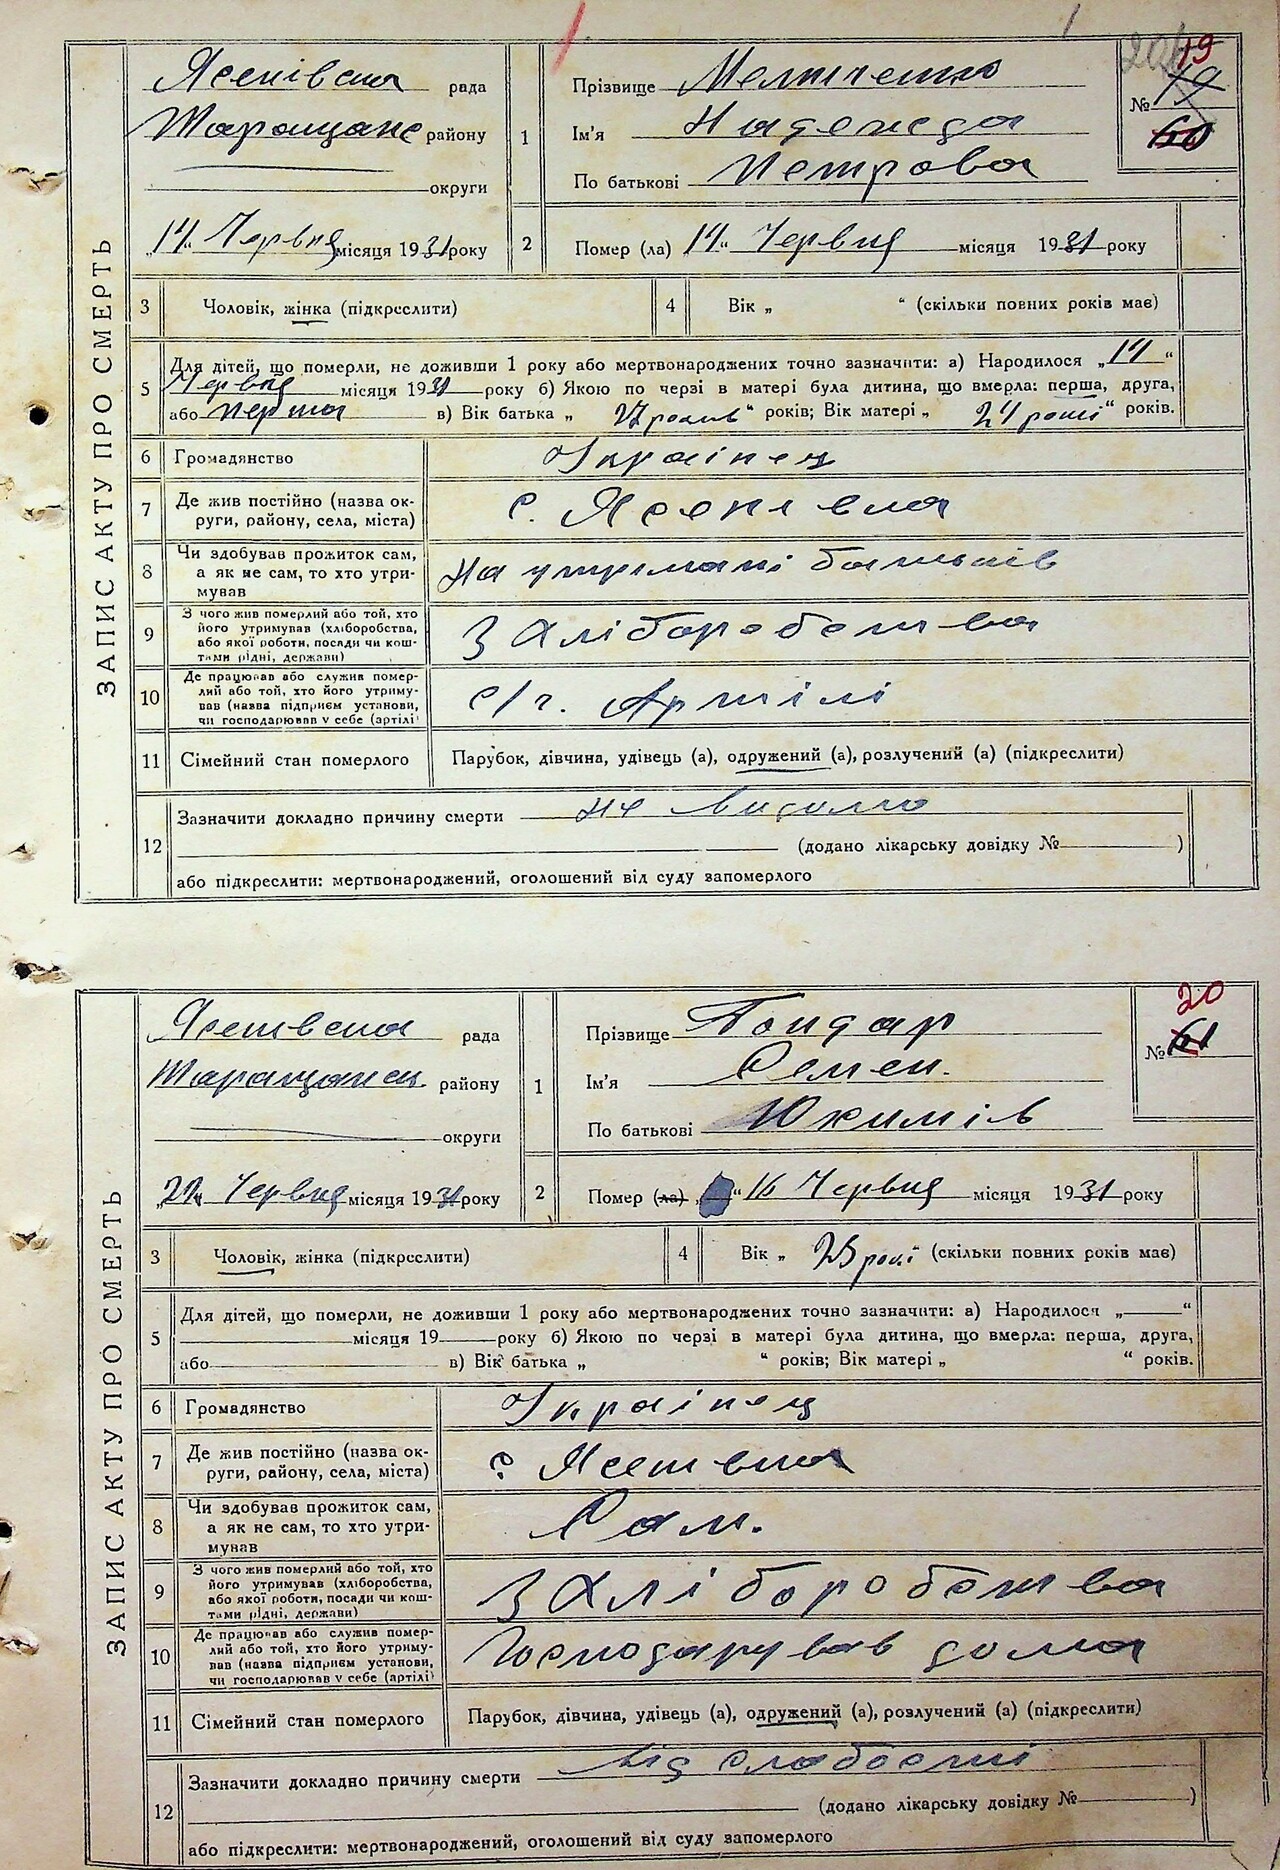 ЗАПИС АКТУ ПРО СМЕРТЬ
Ясенівська рада
Таращанс району
округи
"14" Червня місяця 1931 року
1
Прізвище Мельниченко
Ім'я Надежда
По батькові Петрова
19
№ 19
60
2 Помер (ла) "14" Червня місяця 1931 року
3 Чоловік, жінка (підкреслити)
4 Вік „ “ (скільки повних років має)
5 Для дітей, що померли, не доживши 1 року або мертвонароджених точно зазначити: а) Народилося „14“
Червня місяця 1931 року б) Якою по черзі в матері була дитина, що вмерла: перша, друга,
або перша в) Вік батька „ 27 років “ років; Вік матері „ 24 рокі “ років.
6 Громадянство Українец
7 Де жив постійно (назва округи, району, села, міста) с. Ясенівка
8 Чи здобував прожиток сам,
а як не сам, то хто утримував На утримані батьків
9 З чого жив померлий або той, хто
його утримував (хліборобства,
або якої роботи, посади чи коштами рідні, держави) З Хліборобства
10 Де працював або служив померлий або той, хто його утримував (назва підприєм установи,
чи господарював у себе (артілі) с/г. Артілі
11 Сімейний стан померлого Парубок, дівчина, удівець (а), одружений (а), розлучений (а) (підкреслити)
12 Зазначити докладно причину смерти не видомо
(додано лікарську довідку № )
або підкреслити: мертвонароджений, оголошений від суду запомерлого
ЗАПИС АКТУ ПРО СМЕРТЬ
Ясенівська рада
Таращанськ району
округи
"22" Червня місяця 1931 року
1
Прізвище Бондар
Ім'я Семен.
По батькові Юхимів
20
№ 61
2 Помер (ла) „ “ 16 Червня місяця 1931 року
3 Чоловік, жінка (підкреслити)
4 Вік „ 25 рокі (скільки повних років має)
5 Для дітей, що померли, не доживши 1 року або мертвонароджених точно зазначити: а) Народилося „ “
місяця 19 року б) Якою по черзі в матері була дитина, що вмерла: перша, друга,
або в) Вік батька „ “ років; Вік матері „ “ років.
6 Громадянство Українец
7 Де жив постійно (назва округи, району, села, міста) с Ясенівка
8 Чи здобував прожиток сам,
а як не сам, то хто утримував Сам.
9 З чого жив померлий або той, хто
його утримував (хліборобства,
або якої роботи, посади чи коштами рідні, держави) З Хліборобства
10 Де працював або служив померлий або той, хто його утримував (назва підприєм установи,
чи господарював у себе (артілі) Господарував дома
11 Сімейний стан померлого Парубок, дівчина, удівець (а), одружений (а), розлучений (а) (підкреслити)
12 Зазначити докладно причину смерти від слабости
(додано лікарську довідку № )
або підкреслити: мертвонароджений, оголошений від суду запомерлого